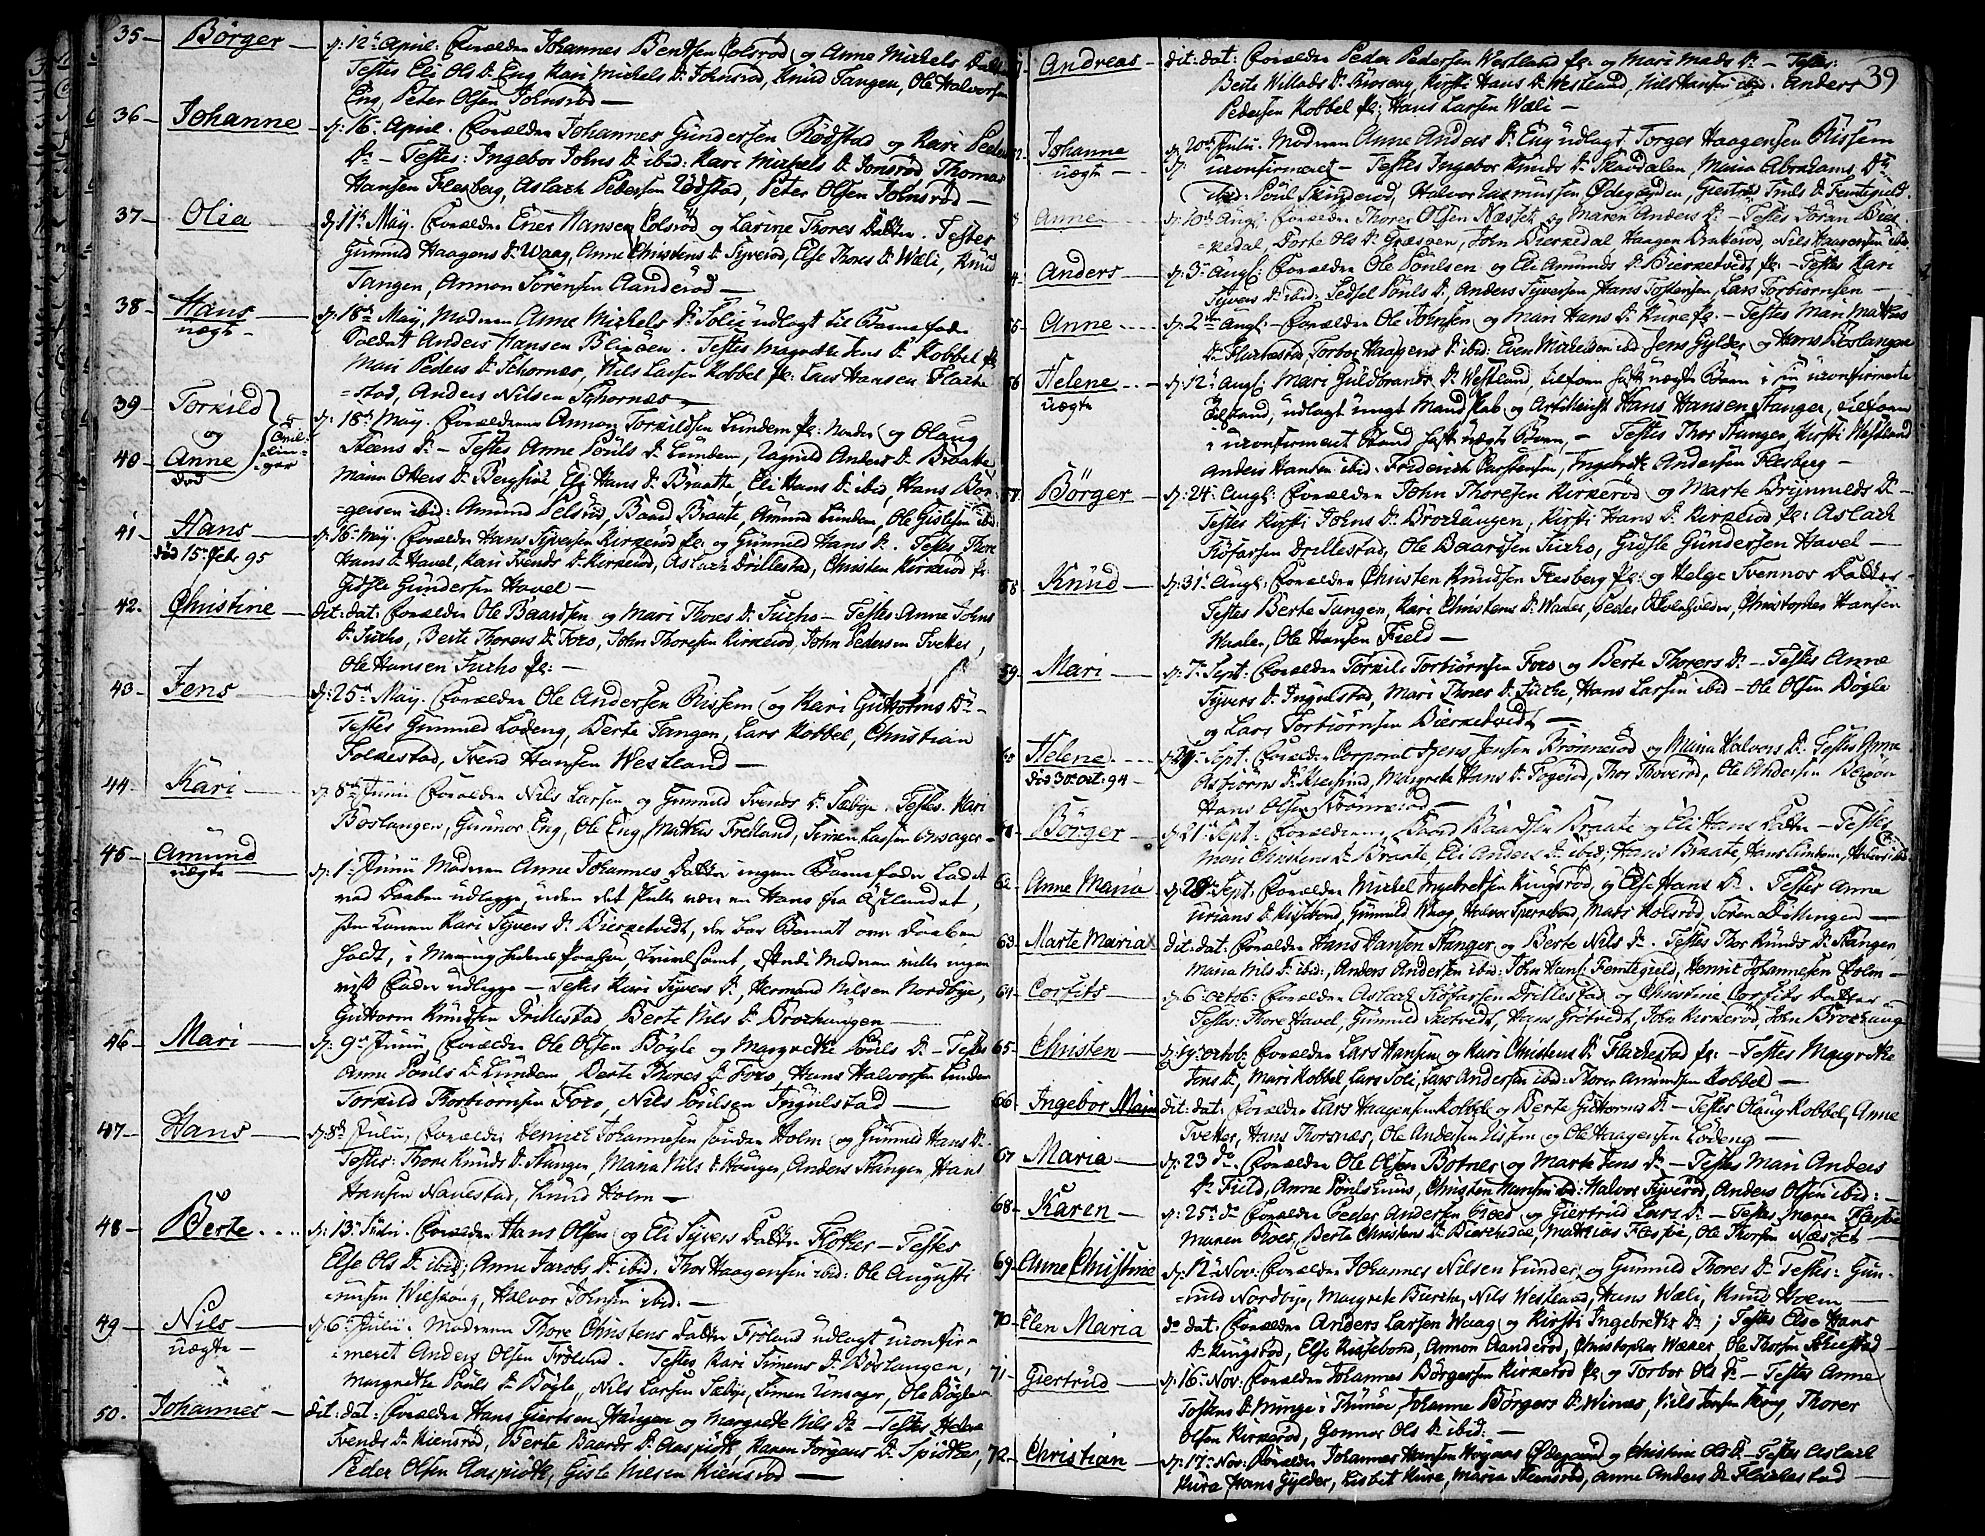 35 - Börger - d: 12t April: Forældr: Johannes Bentsen Colsröd og Anne Mickels Datter
Testes Eli Ols Dr Eng, Kari Mickels Dr Johnsröd, Knud Tangen, Ole Halvorsen
Eng, Peter Olsen Johnsröd -
36 - Johanne - d: 16t April: Forældr: Johannes Gundersen Rödstad og Kari Peders
Dr - Testes: Ingebor Johns Dr ibid: Kari Mickels Dr Jonsröd Thomas
Hansen Flesberg, Aslach Pedersen Rödstad, Peter Olsen Johnsröd -
37 - Olia - d: 11te May. Forældr: Hansen Colsröd og Larine Thores Datter. Testes
Gunnild Haagens Dr Waag, Anne Christens Dr Tyveröd, Else Thores Dr Wæli, Knud
Tangen, Amon Sörensen Aanderöd -
38 - Hans uægte - d: 18de May, Moderen Anne Mickels Dr Solie udlagt til Barnefader
Soldat Anders Hansen Blixöen. Testes Magrethe Jens Dr Kobbel fe
Mari Peders Dr Schornæs, Nils Larsen Kobbel fe: Lars Hansen Flache
=stad, Anders Nilsen Schornæs -
39 - Torkild og - d: 18de May. Forældrene Amon Torkildsen Lunden fe: Norder og Olaug
40 - Anne död Steens Dr - Testes Anne Pouls Dr Lunden, Ragnild Anders Dr Braate
Maria Otters Dr Bergsiö, Eli Hans Dr Braatte, Eli Hans Dr ibid, Hans Bör=
=gersen ibid: Amund Pelsröd, Baard Braate, Amund Lunden, Ole Gislesen ibid:
41 - Hans död 15 Febr 95 d: 16t May: Forældr: Hans Syversen Kirkeröd fe: og Gunnild Hans Dr. Testes Thore
Hans Dr Havel, Kari Svends Dr Kirkeröd, Aslach Drillestad, Christen Kirkeröd fe.
Gisle Gundersen Havel -
42. Christine - dit: dat: Forældr: Ole Baardsen og Mari Thores Dr Furho - Testes Anne Johns
Dr Furho, Berte Thorers Dr Foro, John Thoresen Kirkeröd, John Pedersen Tveter,
Ole Hansen Furho fe: -
43 - Jens - d: 25de May. Forældr: Ole Andersen Rissem og Kari Guttorms Dr -
Testes Gunnild Lodeng, Berte Tangen, Lars Kobbel, Christian
Folkestad, Svend Hansen Westland -
44 - Kari - d: 8de Junii Forældr: Nils Larsen og Gunnild Svends Dr Sæbye. Testes. Kari
Boslangen, Gunnor Eng, Ole Eng, Mathis Frölland, Simen Larsen Onsager -
45 - Amund uægte - d: 1t Junii Moderen Anne Johannes Datter ingen Barnefader Ladet
ved Daaben udlægge, uden det skulle være en Hans fra Östlandet,
Kari Syvers Dr Bierketvedt, der bar Barnet over Daaben
holdt, i Moderen ville ingen
vist Fader udlegge - Testes Kari Syvers Dr, Hermand Nilsen Nordbye,
Guttorm Knudsen Drillestad, Berte Nils Dr Brochangen -
46 - Mari - d: 9de Junii Forældr: Ole Olsen Bögle og Margrethe Pouls Dr - Testes
Anne Pouls Dr Lunden Berte Thores Dr Foro, Hans Halvorsen Lunden
Torkild Thorbiörnsen Foro, Nils Poulsen Ingulstad -
47 - Hans - d: 8de Julii, Forældr: Henrich Johannesen sönder Holm og Gunnild Hans Dr -
Testes: Thore Knuds Dr Stanger, Maria Nils Dr Stanger, Anders Stanger, Hans
Hansen Navestad, Knud Holm -
48 - Berte .... d: 13de Julii. Forældr: Hans Olsen og Eli Syvers Datter Fkotker - Testes
Else Ols Dr ibid: Anne Jacobs Dr ibid. Thor Haagensen ibid: Ole Augusti
=nusen Wilskoug, Halvor Johnsen ibid: -
49 - Nils uægte - d: 6t Julii. Moderen Thore Christens Datter Frölund udlagt uconfir=
=meret Anders Olsen Frölund. Testes Kari Simens Dr Boslangen,
Margrethe Pouls Dr Bögle, Nils Larsen Sæbye, Simen Unsager, Ole Bögle -
50. Johannes - dit: dat: Forældr: Hans Giertsen Haugen og Margrethe Nils Dr - Testes Helene
Svends Dr Kiensröd, Berte Baards Dr Aaspiöth, Karen Jorgans Dr Spiother,
Peder Olsen Aaspiöth, Gisle Nilsen Kiensröd -
39
Andreas - dit: dat: Forældr: Peder Pedersen Westland fe: og Mari Mads Dr - Testes:
Berte Willads Dr Moseng, Kirsti Hans Dr Westland, Nils Hansen ibid. Anders
Pedersen Kobbel fe; Hans Larsen Wæli -
Johanne uægte - d: 20de Julii. Moderen Anne Anders Dr Eng udlagt Torger Haagensen Rissem
uconfirmeret - Testes Ingebor Knuds Dr Skaudalen, Maria Abrahams Dr
ibid: Poul Skinderöd, Halvor Rasmussen Ödegaarden, Giertrud Truls Dr Femtegield.
Anne - d: 10de Augl: Forældr: Thorer Olsen Næstet og Maren Anders Dr - Testes Joran Bier
=kedal, Dorte Ols Dr Græsöen, John Bierkedal Haagen Brateröd, Nils Haagensen ibid.
Anders - d: 3de Augl: Forældr: Ole Poulsen og Eli Amunds Dr Bierketvedt fe. - Testes Kari
Syvers Dr ibid: Sedsel Pouls Dr, Anders Syversen, Hans Tostensen, Lars Torbiörnsen -
55 Anne .... d: 2de Augl: - Forældr: Ole Johnsen og Mari Hans Dr Kure fe: - Testes Mari Mathis
Dr Flachestad, Torbor Haagens Dr ibid: Even Michelsen ibid Jens Gylder og Hans Boslangen
56 Helene uægte - d: 12te Augl: Mari Guldbrands Dr Westland, tilforn havt uægte Börn i sin uconfirmerte
Tilstand, udlagt ungt Mandskab og Artillerist Hans Hansen Stanger, tilforn
i uconfirmert Stand havt uægte Börn, - Testes Thor Stanger, Kirsti Westland
Anders Hansen ibid. Friderich Carstensen, Ingebreth Andersen Flesberg -
57 Börger - d: 24te Augl: Forældr: John Thoresen Kirkeröd og Marte Brynnulds Dr -
Testes Kirsti Johns Dr Brochangen, Kirsti Hans Dr Kirkeröd fe: Aslach
Drillestad, Ole Baardsen Furho, Gisle Gundersen Havel -
58 Knud - d: 31te Augl: Forældr: Christen Knudsen Flesberg fe: og Helge Svennos Datter -
Testes Berte Tangen, Kari Christens Dr Wader, Peder Christopher Hansen
Waaler, Ole Hansen Field -
59 Mari - d: 7de Sept: Forældr: Torkil Torbiörnsen Foro og Berte Thorers Dr - Testes Anne
Syvers Dr Ingulstad, Mari Thores Dr Furho, Hans Larsen ibid - Ole Olsen Bögle
og Lars Torbiörnsen Bierketvedt -
60 Helene död 30 Oct: 94 - d: 29de Sept: Forældr: Corporal Jens Jensen Brönneröd og Maria Halvors Dr Testes Anne
Asbiörns Dr, Margrete Hans Dr Togeröd, Thor Thoveröd, Ole Andersen
Hans Olsen Bronneröd -
61 Börger - d: 21t Sept: Forældrene Baard Baardsen Braate og Eli Hans Datter - Testes
Mari Christens Dr Braate, Eli Anders Dr ibid; Hans Braate, Hans Lunden,
62 Anne Maria - d: 28de Sept: Forældr: Mickel Ingebretsen Kingsröd og Else Hans Dr. Testes Anne
Urians Dr Kissebond, Gunnild Waag, Halvor Sperrebod, Mari Kolsröd, Sören Dillingen -
63 - Marte Maria dit: dat: Forældr: Hans Hansen Stanger og Berte Nils Dr. Testes Thor Knuds Dr Stanger,
Maria Nils Dr ibid:, Anders Andersen ibid: John Hans: Femtegield, Henric Johannesen Holm -
64 - Corfits - d: 6t Octob: Forældr: Aslach Drillestad og Christine Corfits Datter -
Testes: Thore Havel, Gunnild Skotvedt, Hans Grötvedt, John Kirkeröd, John Brochange
65 - Christen - d: 19t Octob: Forældr: Lars Hansen og Kari Christens Dr Flachestad fe: - Testes Margrethe
Jens Dr, Mari Kobbel Lars Soli, Lars Andersen ibid: Thorer Amundsen Kobbel -
66 - Ingebor Maria dit: dat: Forældr: Lars Haagensen Kobbel og Berte Guttorms Dr - Testes Olaug Kobbel, Anne
Tvetter, Hans Thorsnæs, Ole Andersen Rissem og Ole Haagensen Lodeng -
67 Maria - d: 23 do Forældr: Ole Olsen Botner og Marte Jens Dr - Testes Mari Anders
Dr Field, Anne Christen Hansen ibid: Halvor Tyveröd, Anders Olsen ibid: -
68 - Karen - d: 25de do Forældr: Peder Andersen Groes og Giertrud Lars Dr - Testes Maren
Maren Groes, Berte Christens Dr Bierchedal, Mathias Ole Thorsen Næstet -
69 - Anne Christine d: 12te Nov: Forældr: Johannes Nilsen Lunder og Gunnild Thores Dr Testes: Gun=
=nild Nordbye, Margrete Burche, Nils Westland, Hans Wæli, Knud Holm -
70 - Elen Maria do dat: Forældr: Anders Larsen Waag og Kirsti Ingebreths Dr; Testes Else Hans
Dr Kingsröd, Else Kissebond, Amon Aanderöd, Christopher Waaler, Ole Thorsen
71 - Giertrud - d: 16te Nov: Forældr: Johannes Börgersen Kirkeröd fe: og Torbor Ols Dr - Testes Anne
Tostens Dr Munge i Thunöe, Johanne Börgers Dr Winæs, Nils Jensen Kong, Thorer
Olsen Kirkeröd, Gonnor Ols Dr ibid: -
72. Christian d: 17te Nov: Forældr: Johannes Hansen Höyaas Ödegaard og Christine Ols Dr - Testes Aslach
Kure, Hans Gylder, Lisbet Kure, Maria Stensröd, Anne Anders Dr Flachestad -